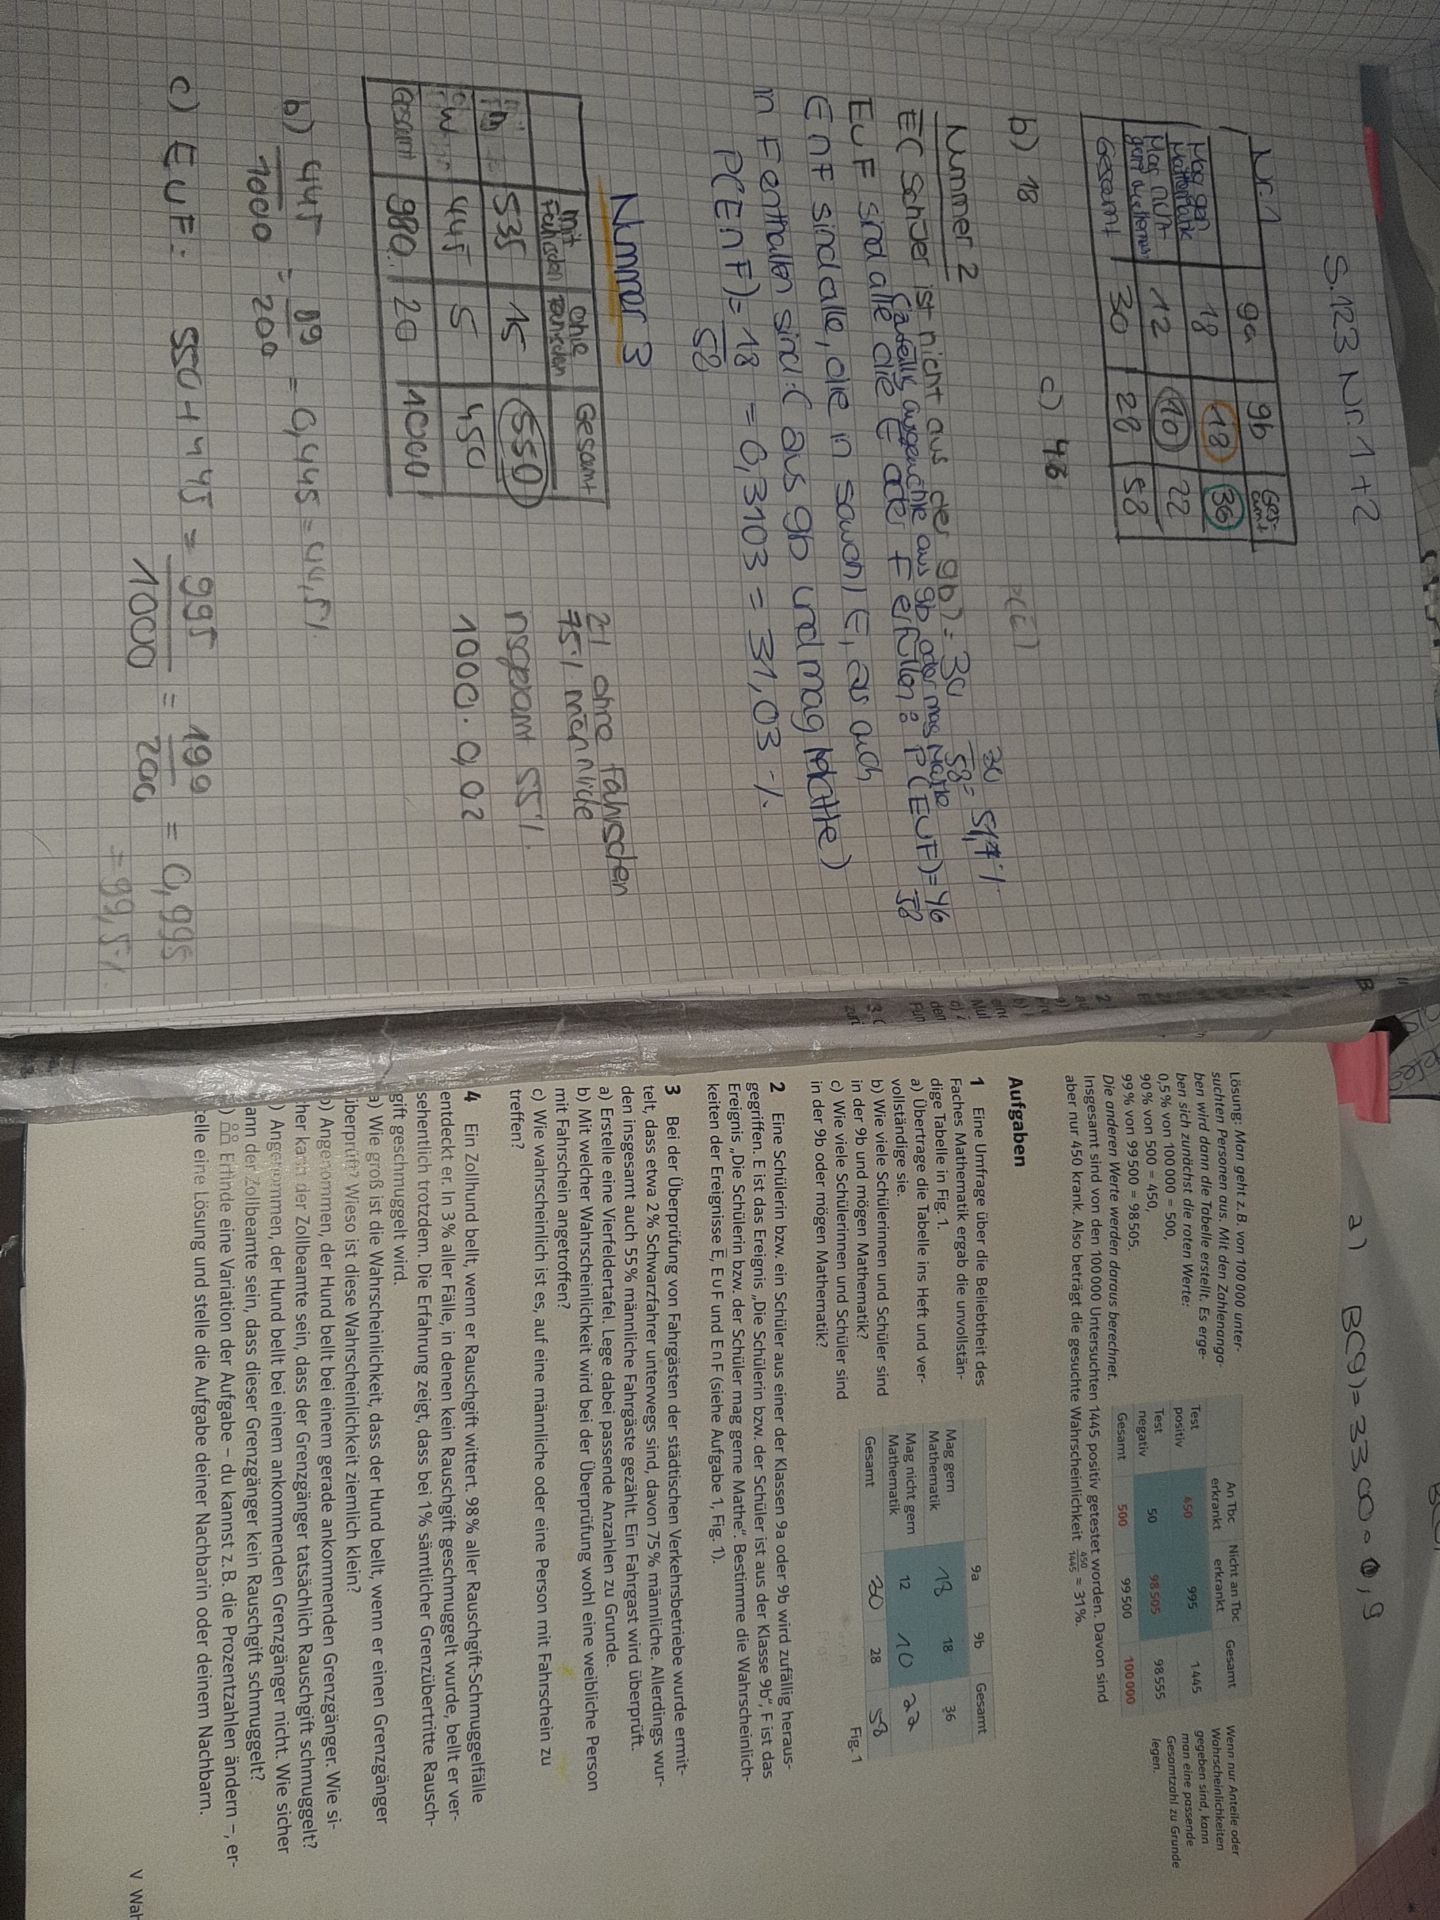 S.123 Nr. 1+2
Nr. 1
9a 9b Ges-amt
Mag gern Mathematik 18 18 36
Mag nicht gern Mathematik 12 10 22
Gesamt 30 28 58
b) 18 c) 46
Nummer 2
30/58 = 51,7 %
E (Schüler ist nicht aus der 9b) = 30
E∪F sind alle die E oder F erfüllen: P(E∪F) = 46/58
E∩F sind alle, die in sowohl E, als auch
in F enthalten sind: (aus 9b und mag Mathe)
P(E∩F) = 18/58 = 0,3103 = 31,03 %
Nummer 3
mit Fahrschein ohne Fahrschein Gesamt
m 535 15 550
w 445 5 450
Gesamt 980 20 1000
2% ohne Fahrschein
75% männliche
insgesamt 55%
1000 · 0,02
b) 445/1000 = 89/200 = 0,445 = 44,5%
c) E∪F: 550 + 445 = 995/1000 = 199/200 = 0,995
= 99,5%
a) B(9) = 33,00 - 0,9
Lösung: Man geht z. B. von 100 000 unter-
suchten Personen aus. Mit den Zahlenanga-
ben wird dann die Tabelle erstellt. Es erge-
ben sich zunächst die roten Werte:
0,5 % von 100 000 = 500,
90 % von 500 = 450,
99 % von 99 500 = 98 505.
Die anderen Werte werden daraus berechnet.
Insgesamt sind von den 100 000 Untersuchten 1445 positiv getestet worden. Davon sind
aber nur 450 krank. Also beträgt die gesuchte Wahrscheinlichkeit 450/1445 ≈ 31%.
An Tbc erkrankt Nicht an Tbc erkrankt Gesamt
Test positiv 450 995 1 445
Test negativ 50 98 505 98 555
Gesamt 500 99 500 100 000
Wenn nur Anteile oder
Wahrscheinlichkeiten
gegeben sind, kann
man eine passende
Gesamtzahl zu Grunde
legen.
Aufgaben
1 Eine Umfrage über die Beliebtheit des
Faches Mathematik ergab die unvollstän-
dige Tabelle in Fig. 1.
a) Übertrage die Tabelle ins Heft und ver-
vollständige sie.
b) Wie viele Schülerinnen und Schüler sind
in der 9b und mögen Mathematik?
c) Wie viele Schülerinnen und Schüler sind
in der 9b oder mögen Mathematik?
9a 9b Gesamt
Mag gern Mathematik 18 18 36
Mag nicht gern Mathematik 12 10 22
Gesamt 30 28 58
Fig. 1
2 Eine Schülerin bzw. ein Schüler aus einer der Klassen 9a oder 9b wird zufällig heraus-
gegriffen. E ist das Ereignis „Die Schülerin bzw. der Schüler ist aus der Klasse 9b“, F ist das
Ereignis „Die Schülerin bzw. der Schüler mag gerne Mathe“. Bestimme die Wahrscheinlich-
keiten der Ereignisse E̅, E∪F und E∩F (siehe Aufgabe 1, Fig. 1).
3 Bei der Überprüfung von Fahrgästen der städtischen Verkehrsbetriebe wurde ermit-
telt, dass etwa 2 % Schwarzfahrer unterwegs sind, davon 75 % männliche. Allerdings wur-
den insgesamt auch 55 % männliche Fahrgäste gezählt. Ein Fahrgast wird überprüft.
a) Erstelle eine Vierfeldertafel. Lege dabei passende Anzahlen zu Grunde.
b) Mit welcher Wahrscheinlichkeit wird bei der Überprüfung wohl eine weibliche Person
mit Fahrschein angetroffen?
c) Wie wahrscheinlich ist es, auf eine männliche oder eine Person mit Fahrschein zu
treffen?
4 Ein Zollhund bellt, wenn er Rauschgift wittert. 98 % aller Rauschgift-Schmuggelfälle
entdeckt er. In 3 % aller Fälle, in denen kein Rauschgift geschmuggelt wurde, bellt er ver-
sehentlich trotzdem. Die Erfahrung zeigt, dass bei 1 % sämtlicher Grenzübertritte Rausch-
gift geschmuggelt wird.
a) Wie groß ist die Wahrscheinlichkeit, dass der Hund bellt, wenn er einen Grenzgänger
überprüft? Wieso ist diese Wahrscheinlichkeit ziemlich klein?
b) Angenommen, der Hund bellt bei einem gerade ankommenden Grenzgänger. Wie si-
cher kann der Zollbeamte sein, dass der Grenzgänger tatsächlich Rauschgift schmuggelt?
) Angenommen, der Hund bellt bei einem ankommenden Grenzgänger nicht. Wie sicher
ann der Zollbeamte sein, dass dieser Grenzgänger kein Rauschgift schmuggelt?
) Erfinde eine Variation der Aufgabe – du kannst z. B. die Prozentzahlen ändern –, er-
telle eine Lösung und stelle die Aufgabe deiner Nachbarin oder deinem Nachbarn.
V Wah